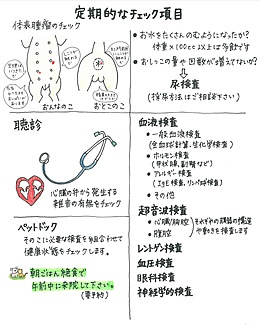 定期的なチェック項目
体表腫瘤のチェック
おんなのこ
おとこのこ
• お水をたくさんのむようになったか?
体重×100cc以上は多飲です
• おしっこの量や回数が増えてないか?
尿検査
(採尿方法はご相談下さい)
聴診
心臓の弁から発生する
雑音の有無をチェック
血液検査
• 一般血液検査
(全血球計算、生化学検査)
• ホルモン検査
(甲状腺、副腎など)
• アレルギー検査
(IgE検査、リンパ球検査)
• その他
超音波検査
• 心臓/胸腔
• 腹腔
それぞれの臓器の構造
や動きを検査します
レントゲン検査
血圧検査
眼科検査
神経学的検査
ペットドック
そのこに必要な検査を組合わせて
健康状態をチェックします。
朝ごはん絶食で
午前中に来院して下さい。
(要予約)